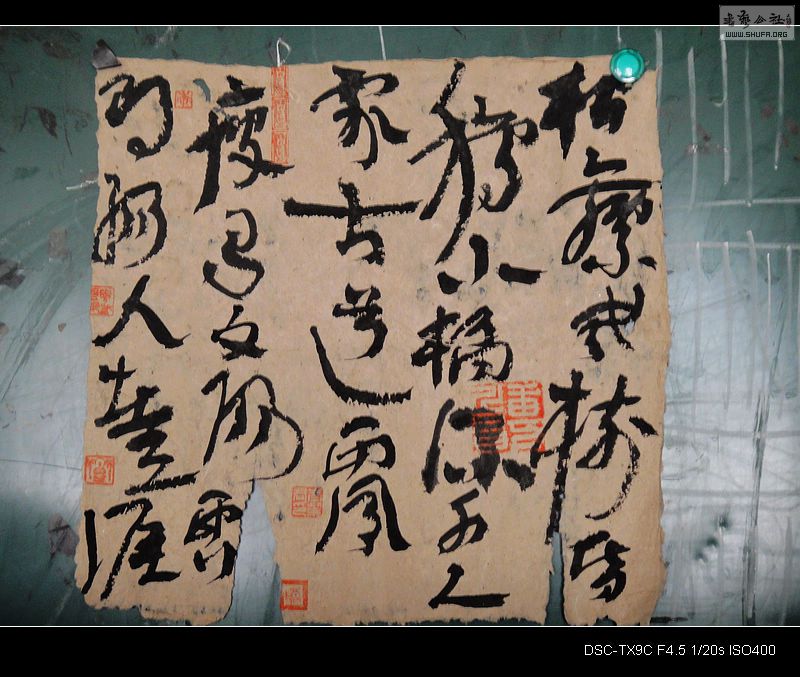 枯藤老樹昏
鴉小橋流水人
家古道西風
瘦馬夕陽西下
斷腸人在天涯
书艺公社
WWW.SHUFA.ORG
DSC-TX9C F4.5 1/20s ISO400